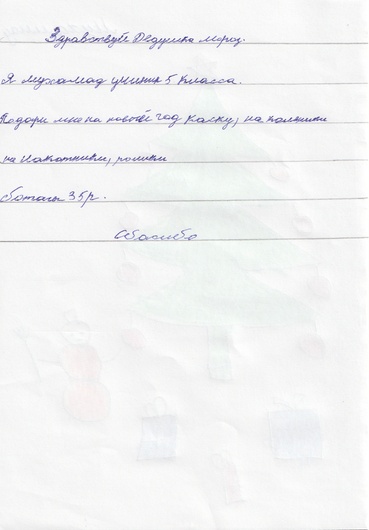 Здравствуй Дедушка мороз.
Я Мухамад ученик 5 класса.
Подари мне на новый год каску, на коленики
на локотники, ролики
ботасы 35р.
Спосибо